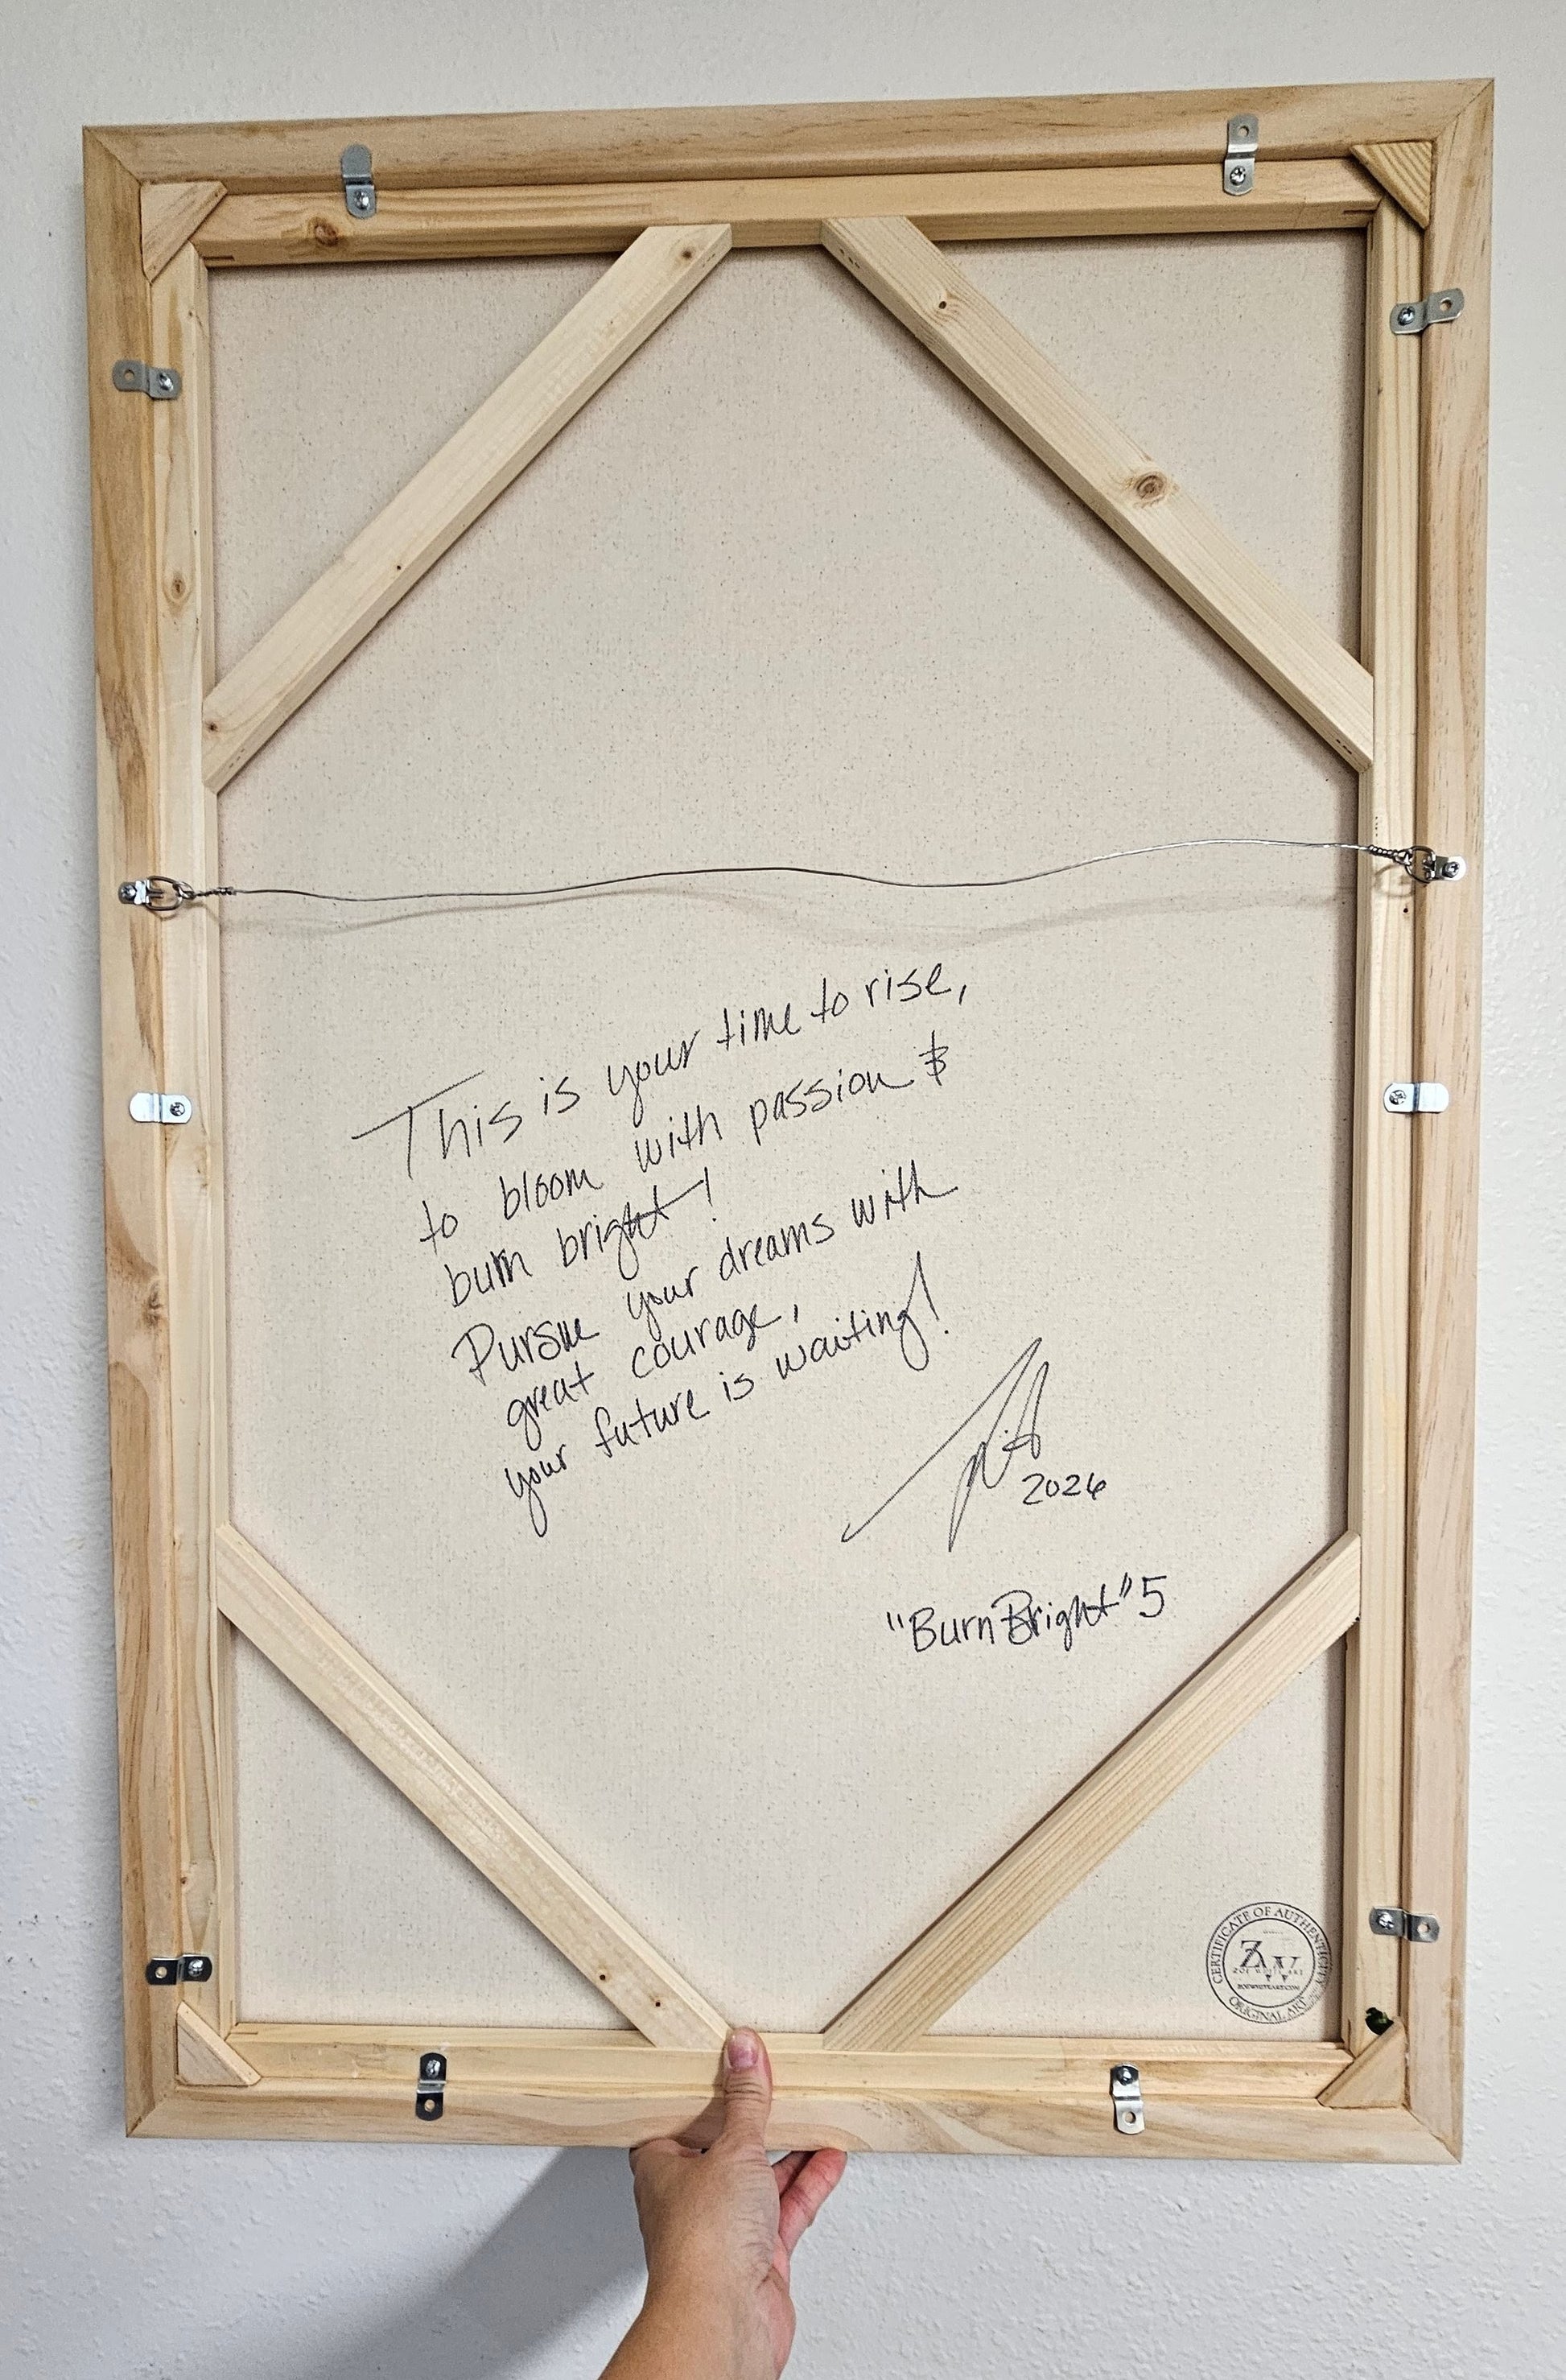 This is your time to rise,
to bloom with passion &
burn bright!
Pursue your dreams with
great courage,
your future is waiting!
2026
"Burn Bright" 5
CERTIFICATE OF AUTHENTICITY
ZW
ZOE WHITE ART
ORIGINAL ART